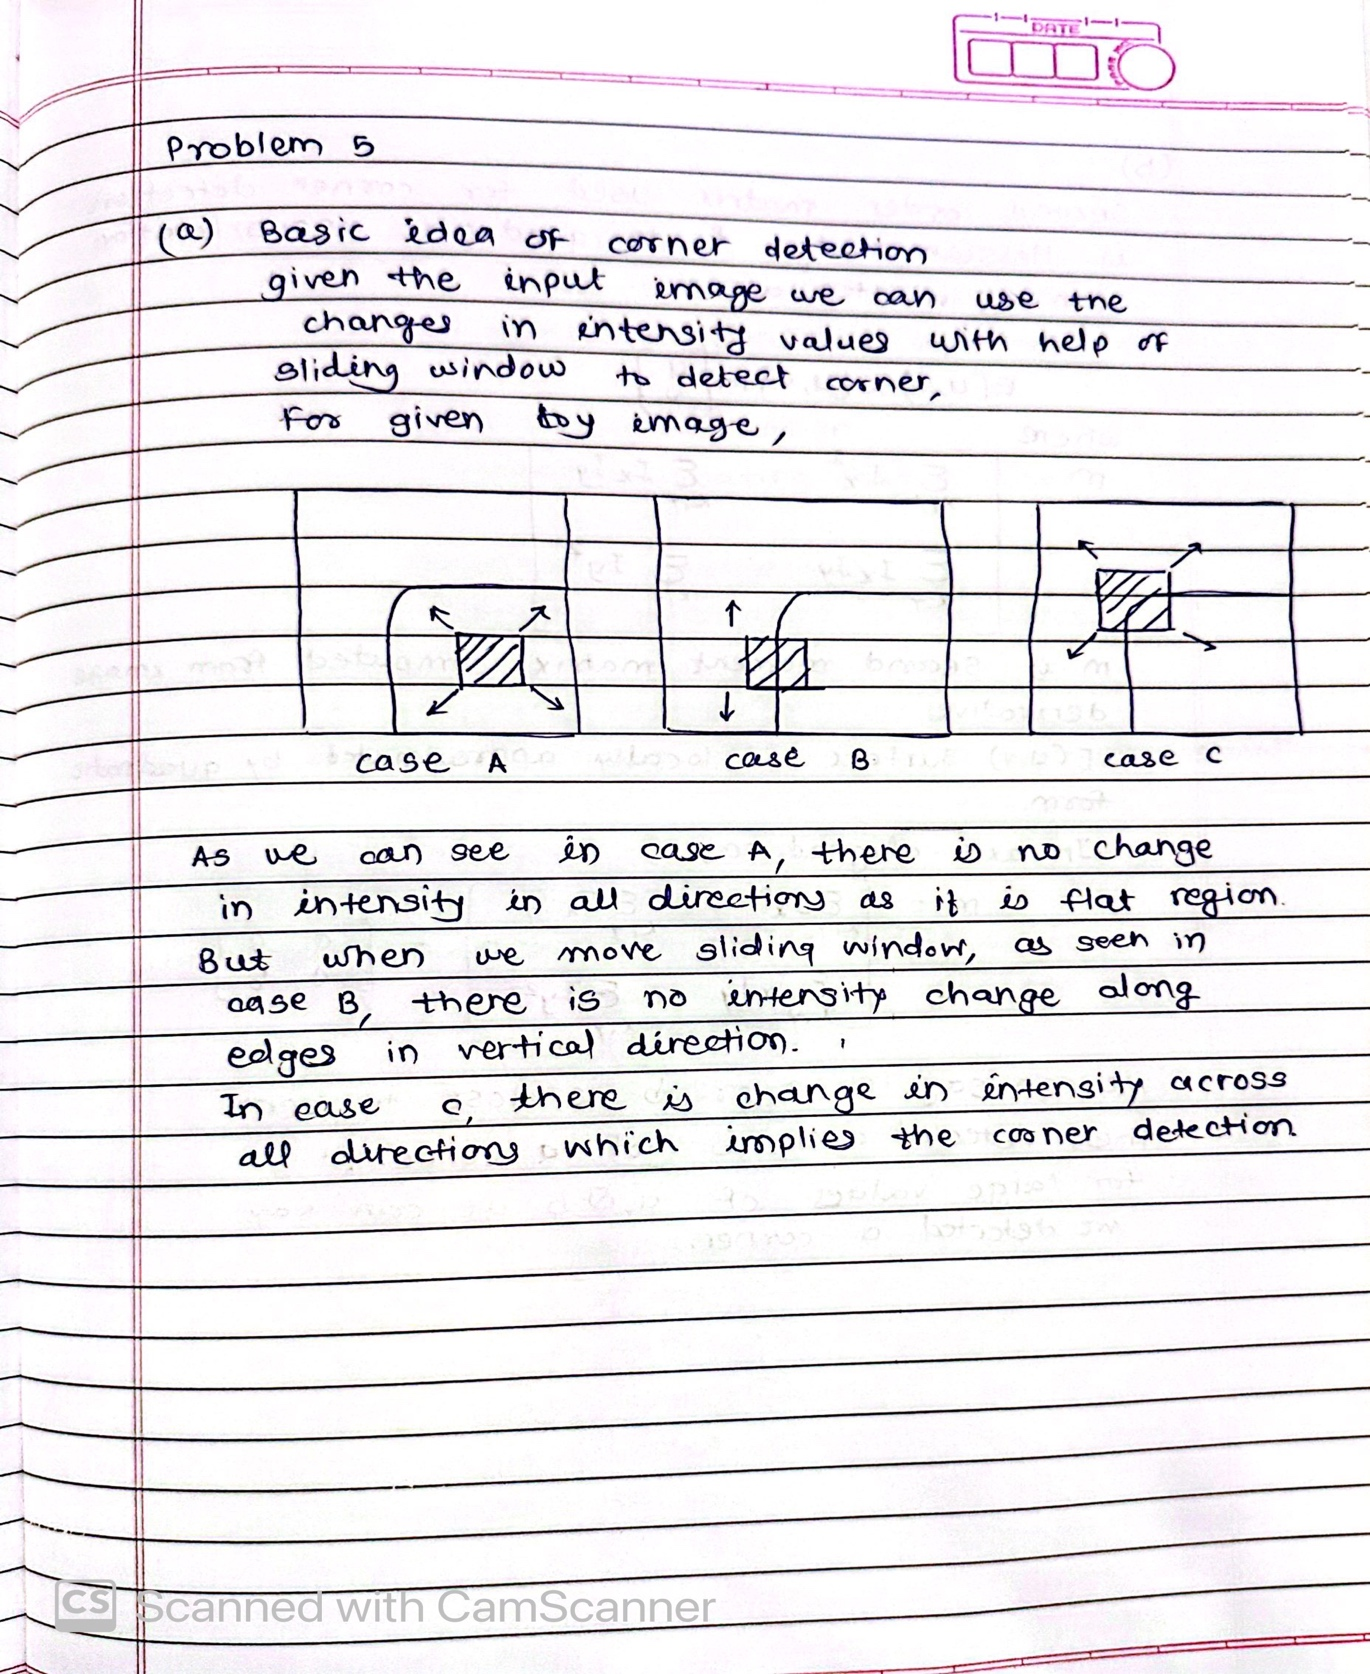 DATE
Problem 5
(a) Basic idea of corner detection
given the input image we can use the
changes in intensity values with help of
sliding window to detect corner,
For given toy image,
case A case B case C
As we can see in case A, there is no change
in intensity in all directions as it is flat region.
But when we move sliding window, as seen in
case B, there is no intensity change along
edges in vertical direction.
In case C, there is change in intensity across
all directions which implies the corner detection.
CS Scanned with CamScanner